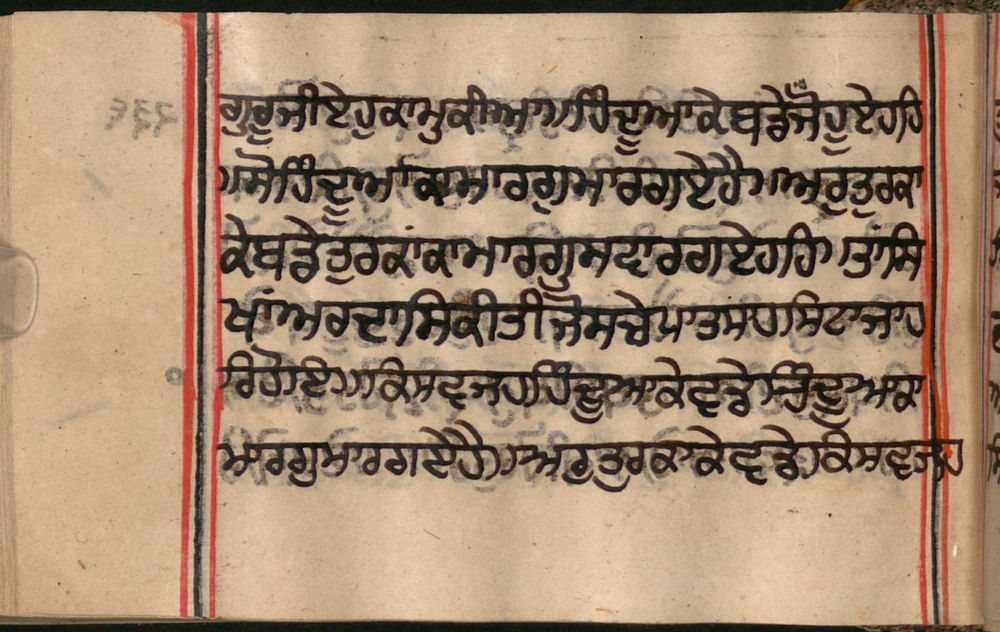 ਗੁਰੂਜੀਏਹੁਕਾਮੁਕੀਆ॥ਹਿੰਦੂਆਕੇਬਡੇਜੋਹੂਏਹਹਿ
॥ਸੋਹਿੰਦੂਆਂਕਾਮਾਰਗੁਮਾਰਗਏਹੈ॥ਅਰੁਤੁਰਕਾ
ਕੇਬਡੇਤੁਰਕਾਂਕਾਮਾਰਗੁਸਵਾਰਗਏਹਹਿ॥ਤਾਂਸਿ
ਖਾਂਅਰਦਾਸਿਕੀਤੀਜੋਸਚੇਪਾਤਸਾਹ
ਰਿਹੋਇ॥ਕਿਸਵਜਹਹਿੰਦੂਆਕੇਵਡੇਹਿੰਦੂਆਕਾ
ਮਾਰਗੁਮਾਰਗਏਹੈ॥ਅਰੁਤੁਰਕਾਕੇਵਡੇਕਿਸਵਜਹ